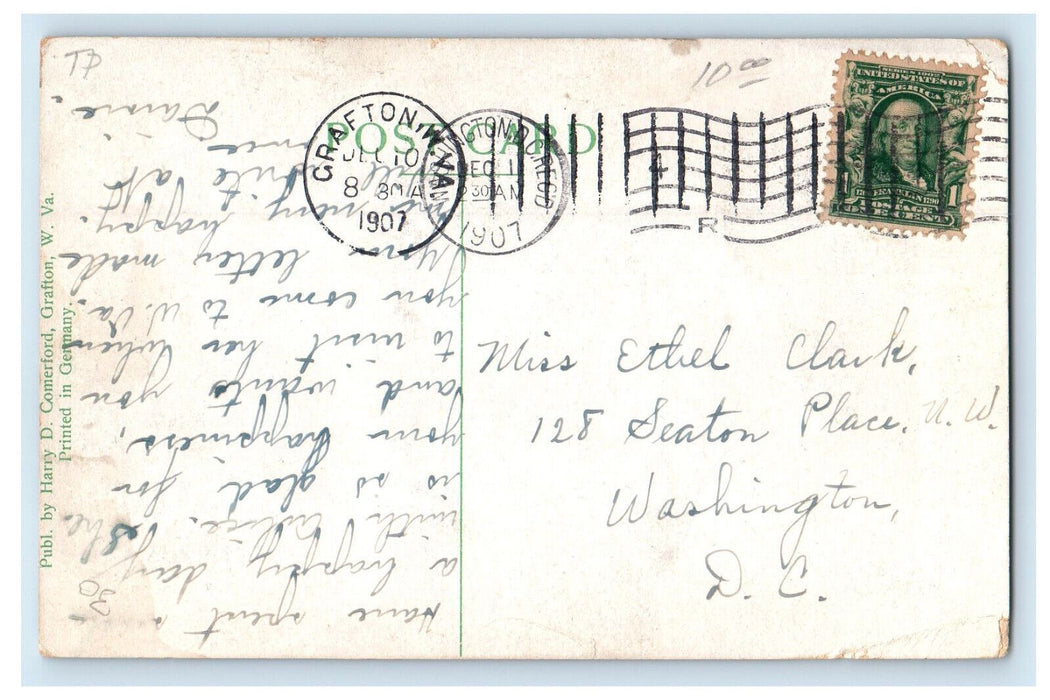 POST CARD
GRAFTON, W.VA.
DEC 10
8 30 A
1907
DEC 11
30 AM
1907
REC'D
4
R
SERIES 1902
UNITED STATES OF AMERICA
1706 FRANKLIN 1790
POSTAGE
ONE CENT
1
10 00
30
Miss Ethel Clark,
128 Seaton Place, N.W.
Washington,
D. C.
Have spent
a happy day
with She
is so glad for
your happiness,
and wants you
to visit her when
you come to W. Va.
Your letter made
me very happy.
Will write apt
once
Publ. by Harry D. Comerford, Grafton, W. Va.
Printed in Germany.